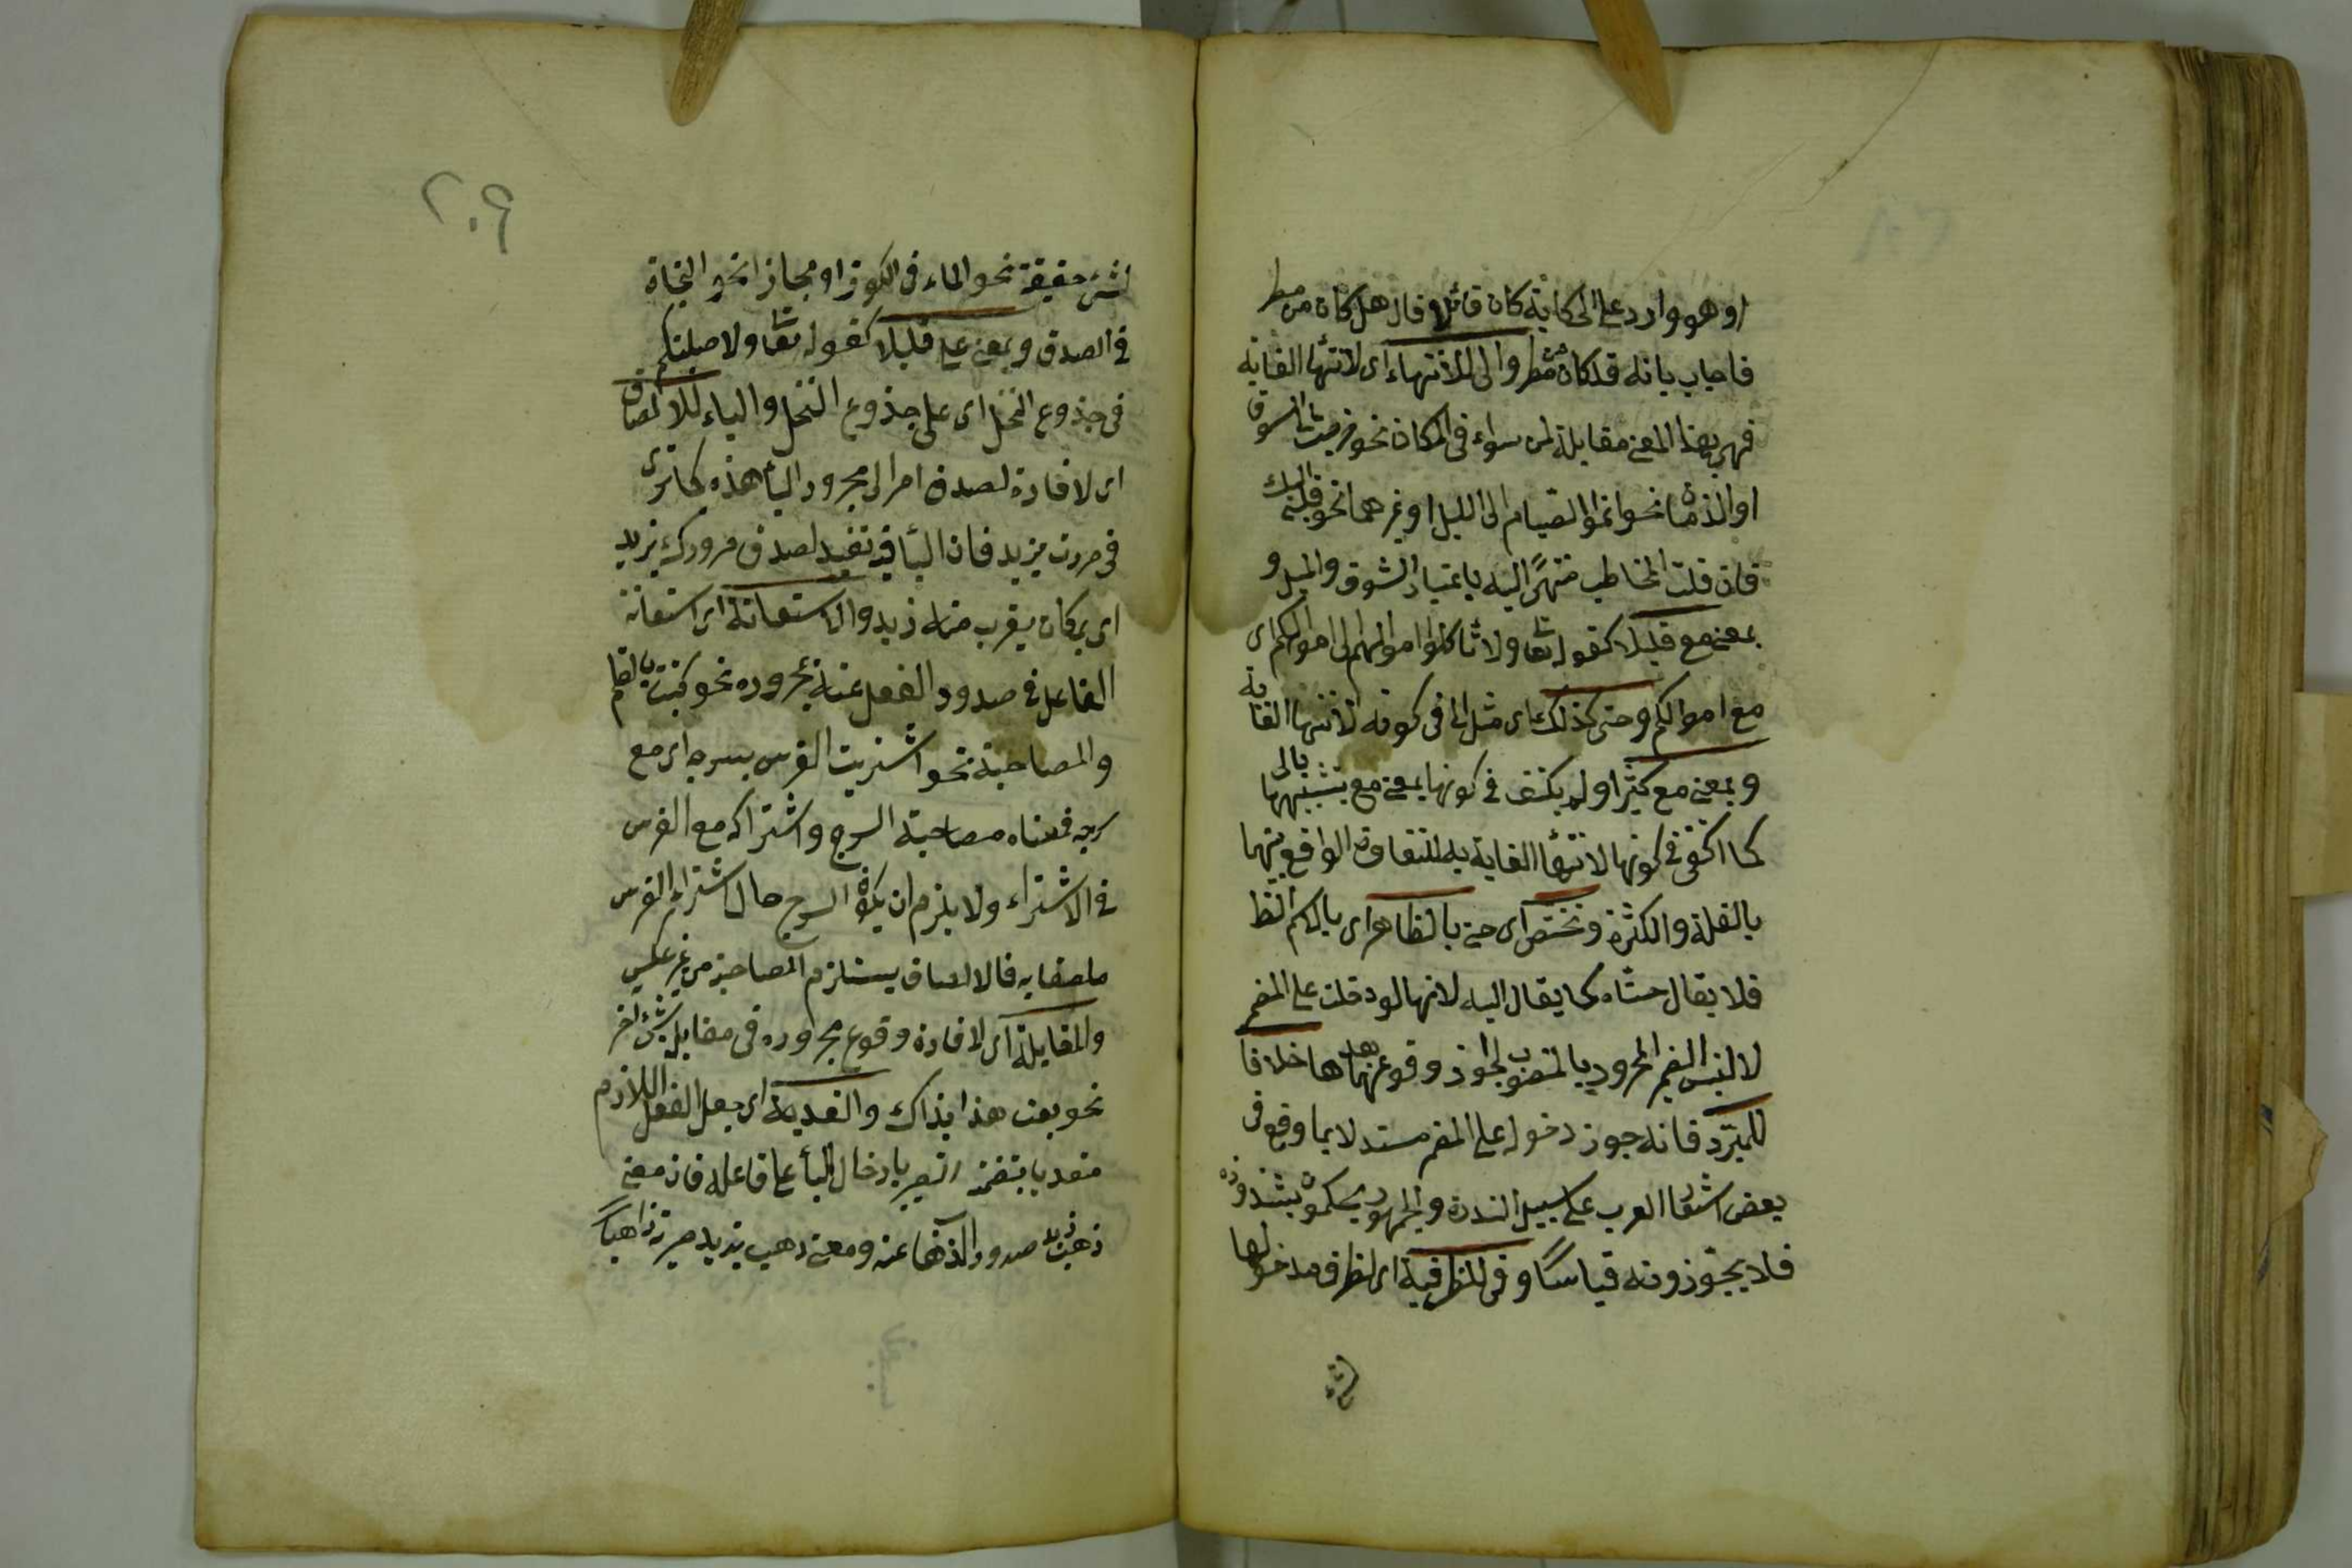 او هو وارد على الحكاية كان قائلا قال هل كان من مطر
فاجاب بانه قد كان من مطر والى للانتهاء اى لانتهاء الغاية
فهى بهذا المعنى مقابلة لمن سواء فى المكان نحو خرجت الى السوق
او الزمان نحو اتموا الصيام الى الليل او غيرهما نحو قلبى اليك
فان قلت المخاطب منتهى اليه باعتبار الشوق والميل و
بمعنى مع قليلا كقوله تعا ولا تأكلوا اموالهم الى اموالكم اى
مع اموالكم وحتى كذلك اى مثل الى فى كونه لانتهاء الغاية
وبمعنى مع كثيرا ولم يكتف فى كونها بمعنى مع بتشبيهها بالى
كما اكتفى فى كونها لانتهاء الغاية به للتفاوت الواقع بينهما
بالقلة والكثرة وتختص اى حتى بالظاهر اى بالاسم الظ
فلا يقال حتاه كما يقال اليه لانها لو دخلت على المضمر
لالتبس الضمير المجرور بالمنصوب لجواز وقوعهما بعدها خلافا
للمبرد فانه جوز دخوله على المضمر مستدلا بما وقع فى
بعض اشعار العرب على سبيل الندرة والجمهور يحكمون بشذوذه
فلا يجوزونه قياسا وفى للظرفية اى لظرفية مدخولها
لشئ
٢٠٩
لشئ حقيقة نحو الماء فى الكوز او مجازا نحو النجاة
فى الصدق وبمعنى على قليلا كقوله تعا ولاصلبنكم
فى جذوع النخل اى على جذوع النخل والباء للالصاق
اى لافادة لصوق امر الى مجرور الباء هذه كما ترى
فى مررت بزيد فان الباء فيه تفيد لصوق مرورك بزيد
اى بمكان يقرب منه زيد والاستعانة اى استعانة
الفاعل فى صدور الفعل عنه بمجروره نحو كتبت بالقلم
والمصاحبة نحو اشتريت الفرس بسرجه اى مع
سرجه فمعناه مصاحبة السرج واشتراكه مع الفرس
فى الاشتراء ولا يلزم ان يكون السرج حال اشتراء الفرس
ملصقا به فالالصاق يستلزم المصاحبة من غير عكس
والمقابلة اى لافادة وقوع مجروره فى مقابلة شئ اخر
نحو بعت هذا بذاك والتعدية اى جعل الفعل اللازم
متعديا بتضمنه التصيير بادخال الباء على فاعله فان معنى
ذهب زيد صدور الذهاب عنه ومعنى ذهبت بزيد صيرته ذاهبا